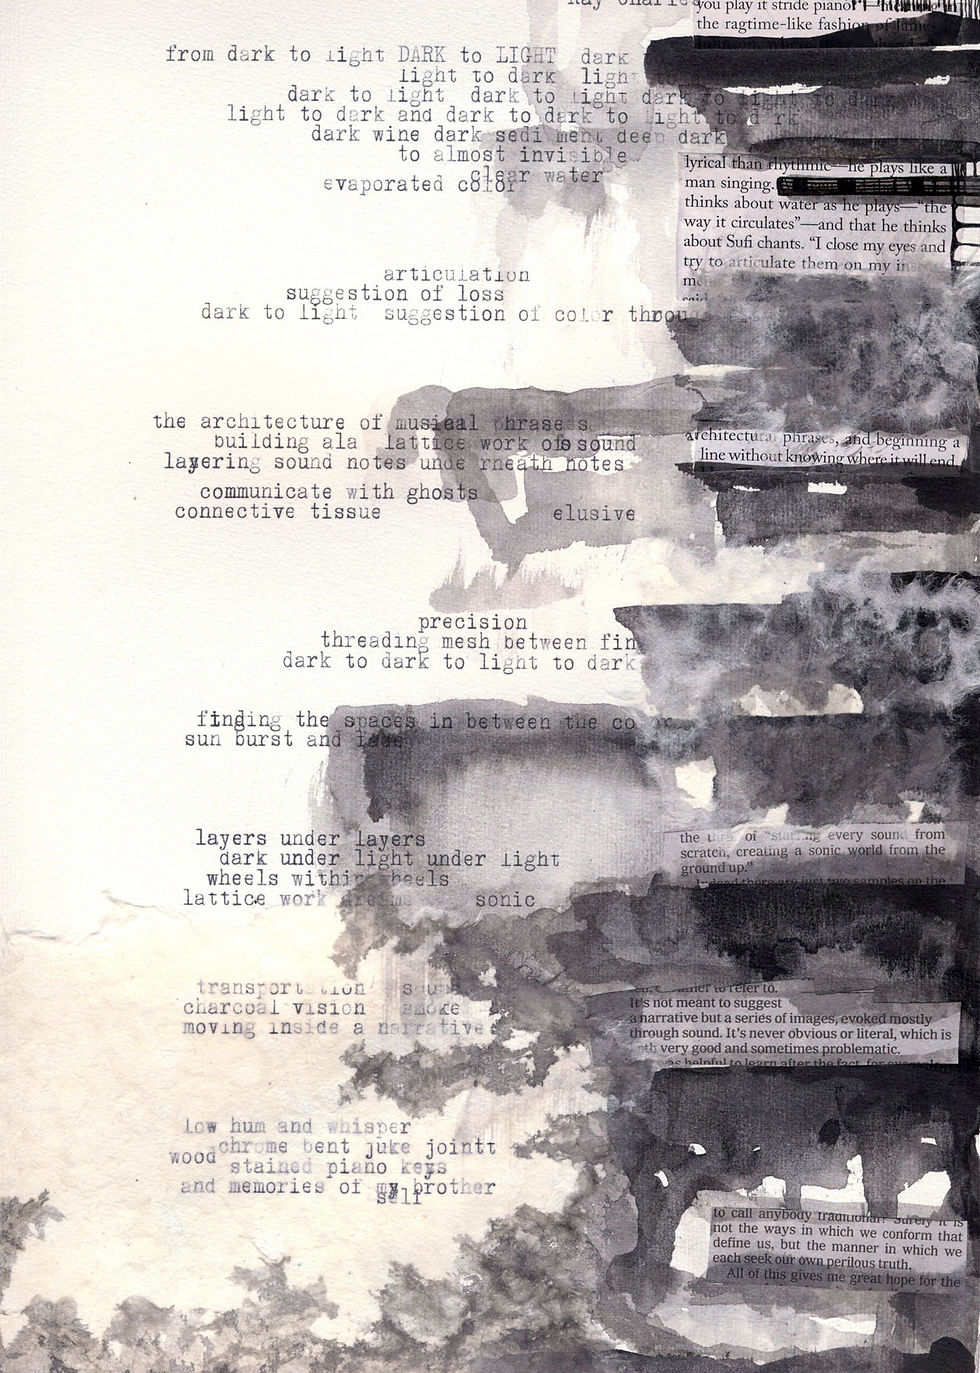 Ray Charles
you play it stride piano?"
the ragtime-like fashion of James
from dark to light DARK to LIGHT dark
light to dark light
dark to light dark to light dark to light to dark
light to dark and dark to dark to light to d rk
dark wine dark sedi ment deep dark
to almost invisible
clear water
evaporated color
lyrical than rhythmic—he plays like a
man singing.
thinks about water as he plays—"the
way it circulates"—and that he thinks
about Sufi chants. "I close my eyes and
try to articulate them on my
articulation
suggestion of loss
dark to light suggestion of color throug
the architecture of musical phrase s
building ala lattice work of sound
layering sound notes unde rneath notes
architectural phrases, and beginning a
line without knowing where it will end
communicate with ghosts
connective tissue elusive
precision
threading mesh between fin
dark to dark to light to dark
finding the spaces in between the co r
sun burst and fade
layers under layers
dark under light under light
wheels within wheels
lattice work dreams sonic
the of "starting every sound from
scratch, creating a sonic world from the
ground up."
Indeed there are just two samples on the
transportation
charcoal vision smoke
moving inside a narrative
to refer to.
It's not meant to suggest
a narrative but a series of images, evoked mostly
through sound. It's never obvious or literal, which is
both very good and sometimes problematic.
was helpful to learn after the fact, for
low hum and whisper
chrome bent juke jointt
wood stained piano keys
and memories of my brother
self
to call anybody traditional? Surely it is
not the ways in which we conform that
define us, but the manner in which we
each seek our own perilous truth.
All of this gives me great hope for the